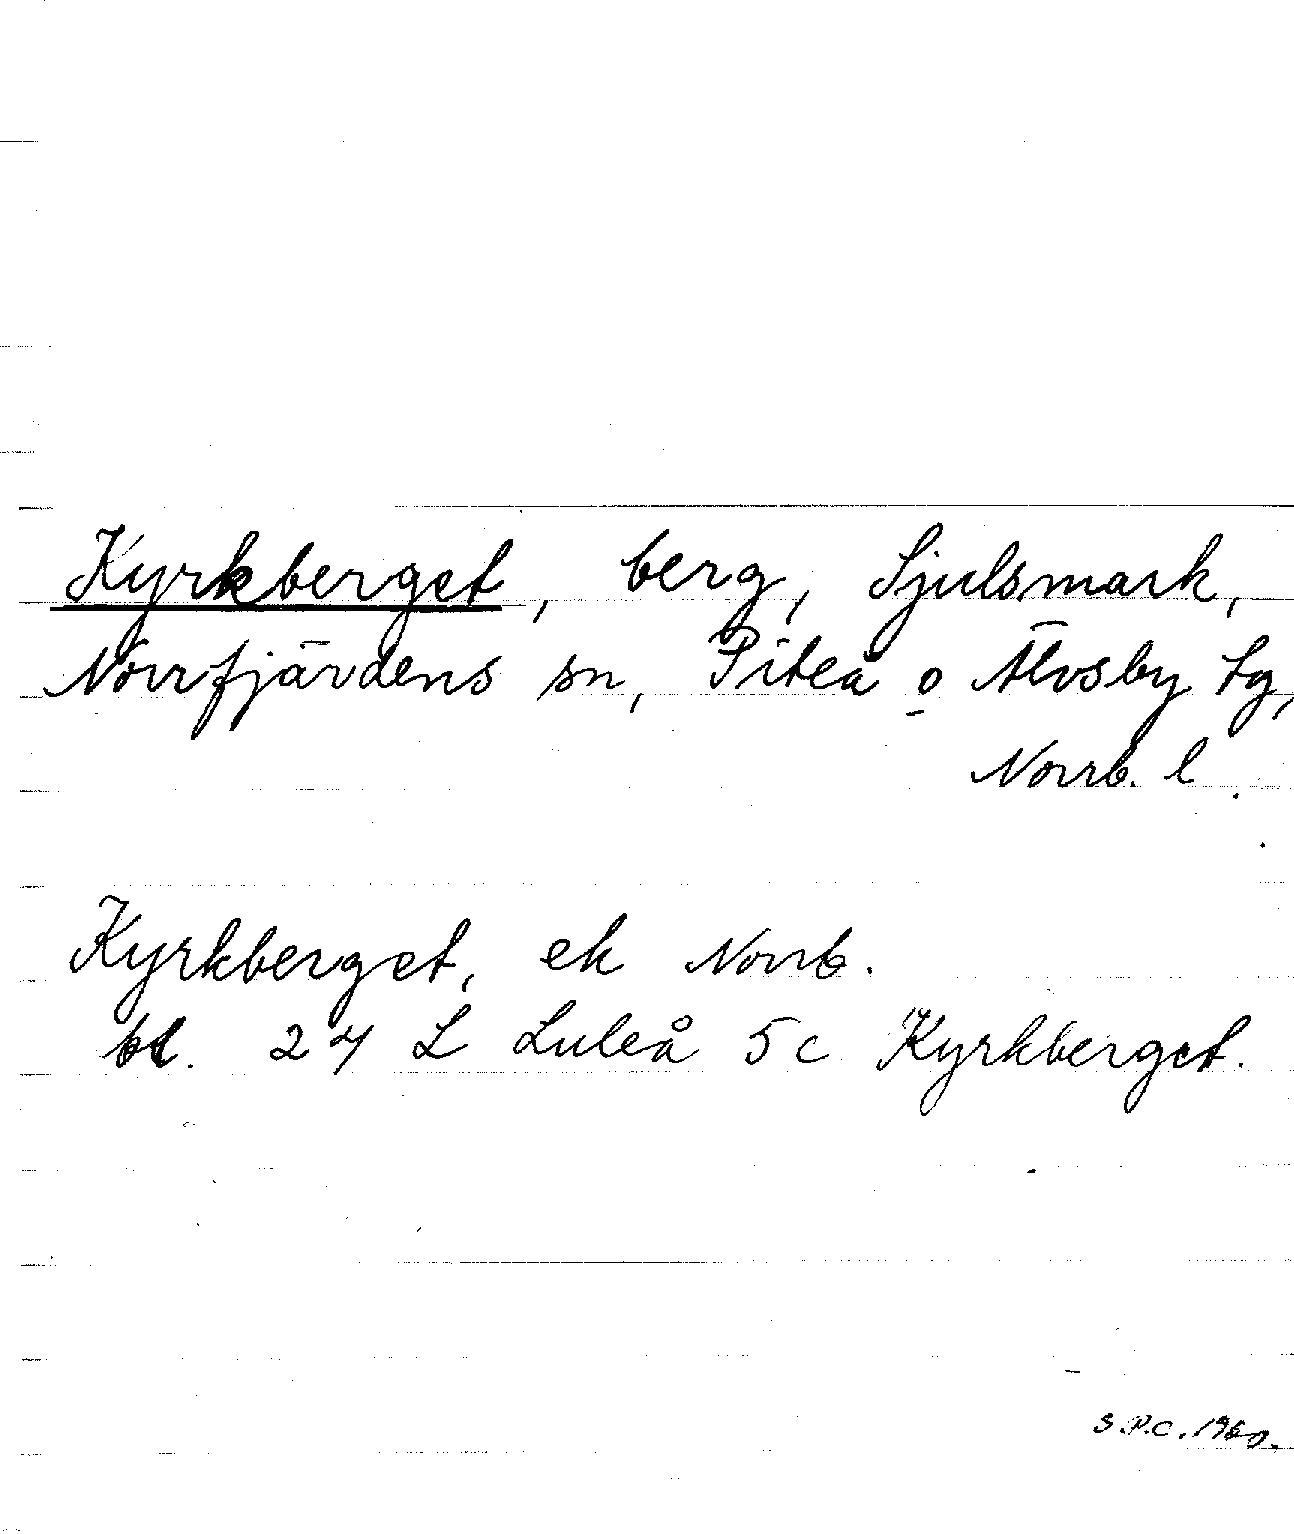 Kyrkberget, berg, Sjulsmark,
Norrfjärdens sn, Piteå o Älvsby tg,
Norrb. l.
Kyrkberget, ek Norrb.
bl. 24 L Luleå 5 c Kyrkberget.
S.P.C. 1960.